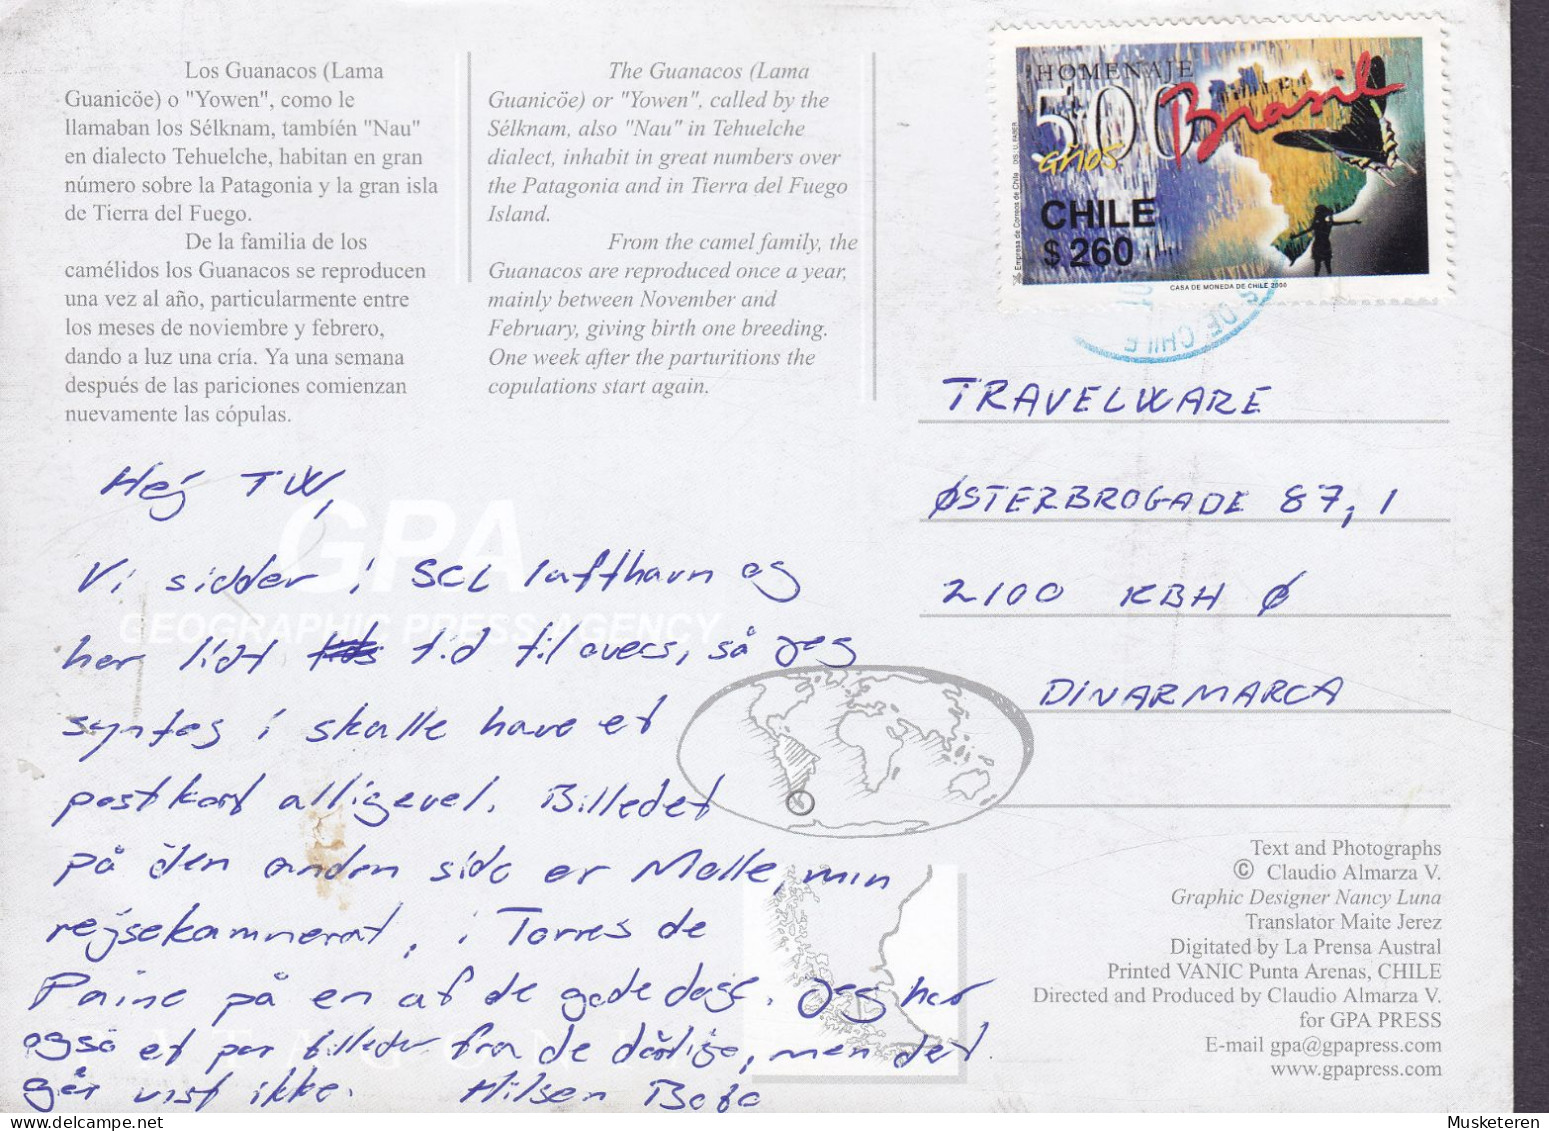 Los Guanacos (Lama
Guanicöe) o "Yowen", como le
llamaban los Sélknam, también "Nau"
en dialecto Tehuelche, habitan en gran
número sobre la Patagonia y la gran isla
de Tierra del Fuego.
De la familia de los
camélidos los Guanacos se reproducen
una vez al año, particularmente entre
los meses de noviembre y febrero,
dando a luz una cría. Ya una semana
después de las pariciones comienzan
nuevamente las cópulas.
The Guanacos (Lama
Guanicöe) or "Yowen", called by the
Sélknam, also "Nau" in Tehuelche
dialect, inhabit in great numbers over
the Patagonia and in Tierra del Fuego
Island.
From the camel family, the
Guanacos are reproduced once a year,
mainly between November and
February, giving birth one breeding.
One week after the parturitions the
copulations start again.
HOMENAJE
500 Brasil
años
CHILE
$ 260
Empresa de Correos de Chile DIS.: U. FABER
CASA DE MONEDA DE CHILE 2000
DE CHILE
GPA
GEOGRAPHIC PRESS AGENCY
Hej TW,
Vi sidder i SCL lufthavn og
har lidt tid til overs, så jeg
syntes i skulle have et
postkort alligevel. Billedet
på den anden side er Malle, min
rejsekammerat, i Torres de
Paine på en af de gode dage. Jeg har
også et par billeder fra de dårlige, men det
går vist ikke. Hilsen Bobo
TRAVELWARE
ØSTERBROGADE 87, 1
2100 KBH Ø
DINARMARCA
Text and Photographs
© Claudio Almarza V.
Graphic Designer Nancy Luna
Translator Maite Jerez
Digitated by La Prensa Austral
Printed VANIC Punta Arenas, CHILE
Directed and Produced by Claudio Almarza V.
for GPA PRESS
E-mail gpa@gpapress.com
www.gpapress.com
Musketeren